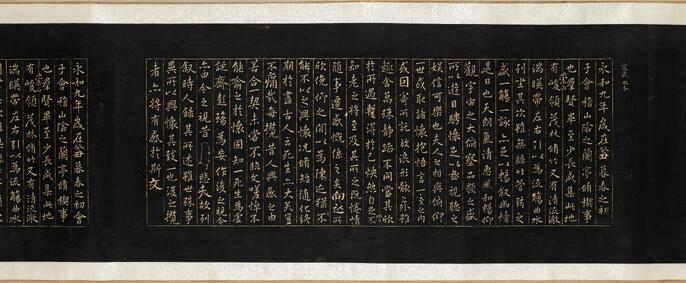 永和九年歲在癸丑暮春之初會
于會稽山陰之蘭亭脩禊事
也羣賢畢至少長咸集此地
有崇山峻領茂林脩竹又有清流激
湍暎帶左右引以為流觴曲水
列坐其次雖無絲竹管弦之
盛一觴一詠亦足以暢敘幽情
是日也天朗氣清惠風和暢仰
觀宇宙之大俯察品類之盛
所以遊目騁懷足以極視聽之
娛信可樂也夫人之相與俯仰
一世或取諸懷抱悟言一室之內
或因寄所託放浪形骸之外雖
趣舍萬殊靜躁不同當其欣
於所遇蹔得於己怏然自足不
知老之將至及其所之既惓情
隨事遷感慨係之矣向之所
欣俛仰之間以為陳迹猶不
能不以之興懷況脩短隨化終
期於盡古人云死生亦大矣豈
不痛哉每攬昔人興感之由
若合一契未嘗不臨文嗟悼不
能喻之於懷固知一死生為虛
誕齊彭殤為妄作後之視今
亦由今之視昔悲夫故列
敘時人錄其所述雖世殊事
異所以興懷其致一也後之攬
者亦將有感於斯文
永和九年歲在癸丑暮春之初會
于會稽山陰之蘭亭脩禊事
也羣賢畢至少長咸集此地
有崇山峻領茂林脩竹又有清流激
湍暎帶左右引以為流觴曲水